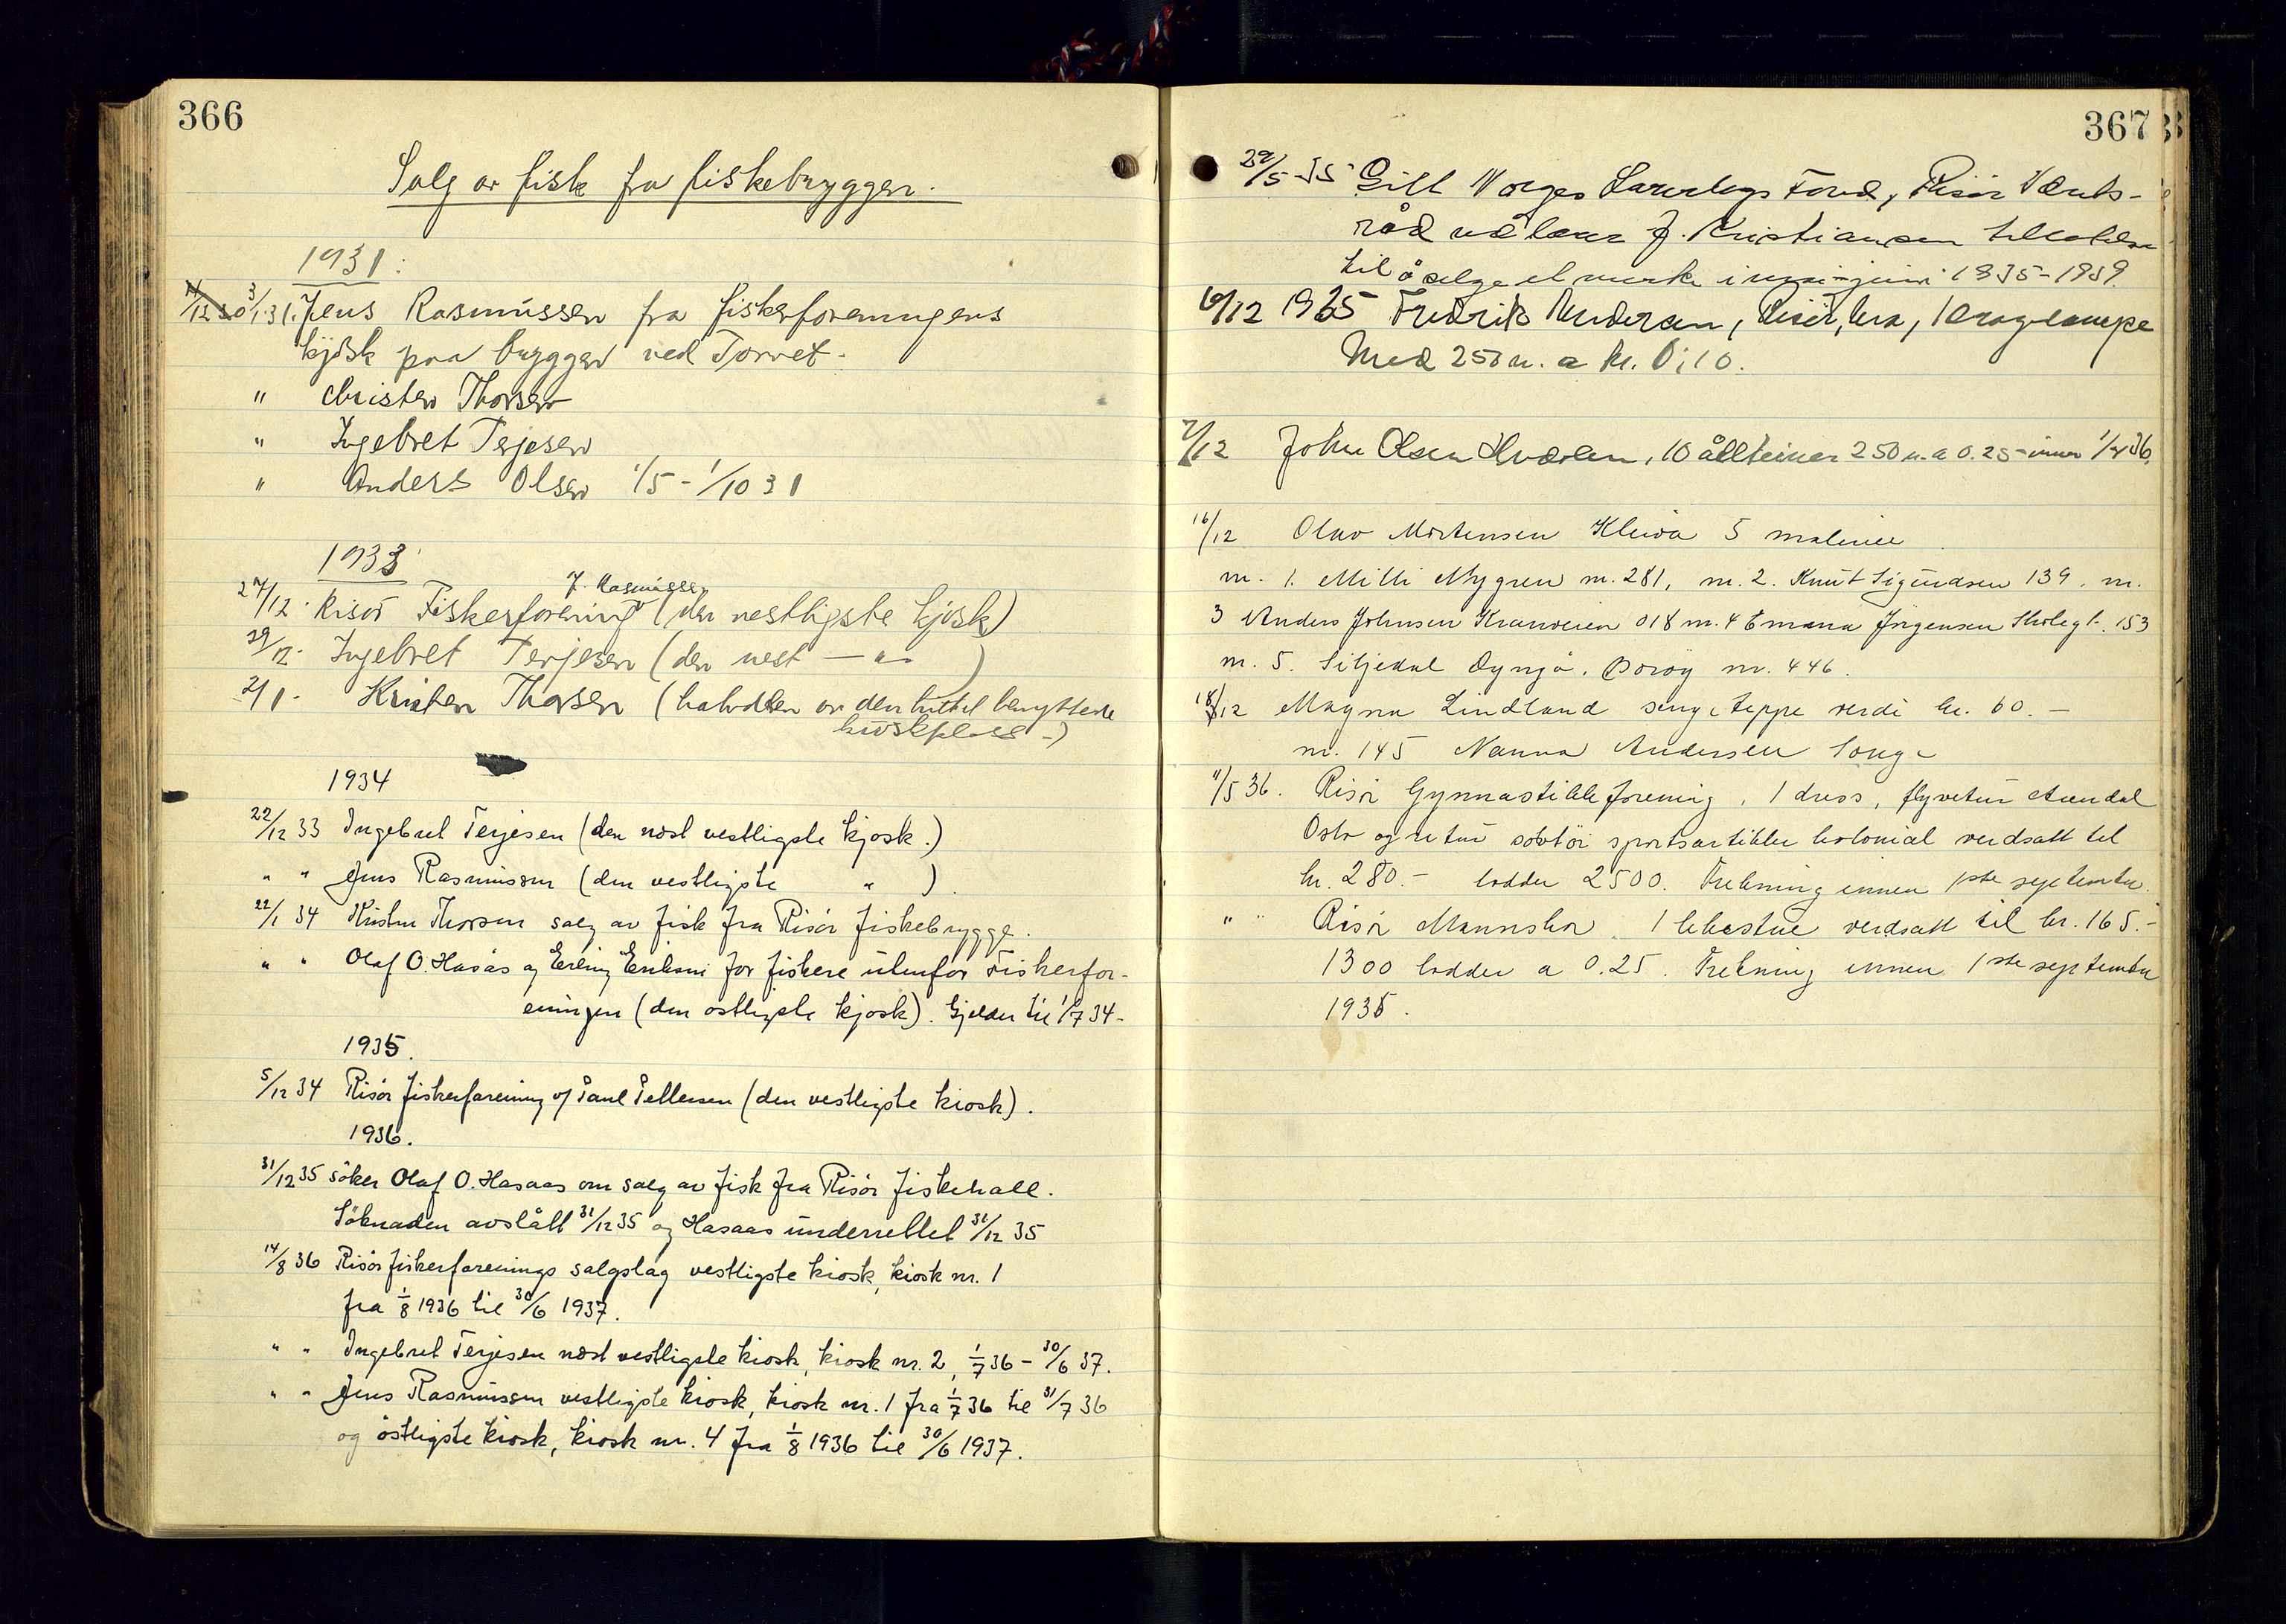 366
Salg av fisk fra fiskebryggen.
1931:
11/12 30 3/1-31. Jens Rasmussen fra fiskerforeningens
kjøsk paa bryggen ved Torvet.
" Christen Thorsen
" Ingebret Terjesen
" Anders Olsen 1/5 - 1/10 31
1933
J. Rasmussen
27/12. Risör Fiskerforening (den vestligste kjösk)
29/12. Ingebret Terjesen (den nest — " — )
2/1. Kristen Thorsen (halvdelen av den hittil benyttede
kioskplass -)
1934
22/12 33 Ingebret Terjesen (den nest vestligste kjosk.)
" " Jens Rasmussen (den vestligste " ).
22/1 34 Kristen Thorsen salg av fisk fra Risör fiskebrygge.
" " Olaf O. Hasås og Erling Eriksen for fiskere utenfor Fiskerfor-
eningen (den östligste kjosk). Gjelder til 1/7 34-
1935.
5/12 34 Risör fiskerforening v/ Paul Pettersen (den vestligste kiosk).
1936.
31/12 35 söker Olaf O. Hasaas om salg av fisk fra Risör fiskehall.
Söknaden avslått 31/12 35 og Hasaas underrettet 31/12 35
14/8 36 Risör fiskerforenings salgslag vestligste kiosk, kiosk nr. 1
fra 1/8 1936 til 30/6 1937.
" " Ingebret Terjesen nest vestligste kiosk, kiosk nr. 2, 1/7 36 - 30/6 37.
" " Jens Rasmussen vestligste kiosk, kiosk nr. 1 fra 1/7 36 til 31/7 36
og östligste kiosk, kiosk nr. 4 fra 1/8 1936 til 30/6 1937.
367
29/5-35 Gitt Norges Fond, Risör
råd ved lærer J. Kristiansen tillatelse
til å selge et merke i mai-juni 1935-1939.
10/12 1935 Fredrik Andersen, Risör, 1 kraglampe
Med 250 n. a kr. 0,10.
7/12 John Olsen, 10 ållteiner 250 n. a 0.25 innen 1/4 36.
16/12 Olav Mortensen Kleiva 5 malerier
nr. 1. Milli Nygren nr. 281, nr. 2. Knut Sigurdsen 139. nr.
3 Anders Johnsen Kranveien 018 nr. 4 Emma Jörgensen Skolegt. 153
nr. 5. Siljedal Dynjå. Boröy nr. 446.
18/12 Magna Lindland sengeteppe verdi kr. 60.-
nr. 145 Nanna Andersen Songe
11/5 36. Risör Gymnastikkforening, 1 dress, flyvetur Arendal
Oslo og retur sövtöi sportsartikler kolonial verdsatt til
kr. 280.- lodder 2500. Trekning innen 1ste september.
" " Risör Mannskor 1 lekestue verdsatt til kr. 165.-
1300 lodder a 0.25. Trekning innen 1ste september
1936.